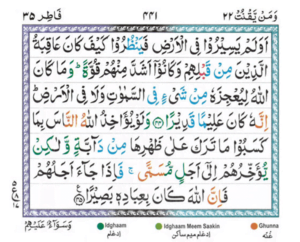 وَمَنْ يَّقْنُتْ ٢٢ ٤٤١ فَاطِر ٣٥
اَوَلَمْ يَسِيْرُوْا فِى الْاَرْضِ فَيَنْظُرُوْا كَيْفَ كَانَ عَاقِبَةُ
الَّذِيْنَ مِنْ قَبْلِهِمْ وَكَانُوْۤا اَشَدَّ مِنْهُمْ قُوَّةً ؕ وَمَا كَانَ
اللّٰهُ لِيُعْجِزَهٗ مِنْ شَىْءٍ فِى السَّمٰوٰتِ وَلَا فِى الْاَرْضِ ؕ
اِنَّهٗ كَانَ عَلِيْمًا قَدِيْرًا ﴿۴۴﴾ وَلَوْ يُؤَاخِذُ اللّٰهُ النَّاسَ بِمَا
كَسَبُوْا مَا تَرَكَ عَلٰى ظَهْرِهَا مِنْ دَآبَّةٍ وَّلٰكِنْ
يُّؤَخِّرُهُمْ اِلٰٓى اَجَلٍ مُّسَمًّى ۚ فَاِذَا جَآءَ اَجَلُهُمْ
فَاِنَّ اللّٰهَ كَانَ بِعِبَادِهٖ بَصِيْرًا ﴿۴۵﴾
Idghaam ادغام Idghaam Meem Saakin ادغام میم ساکن Ghunna غنه